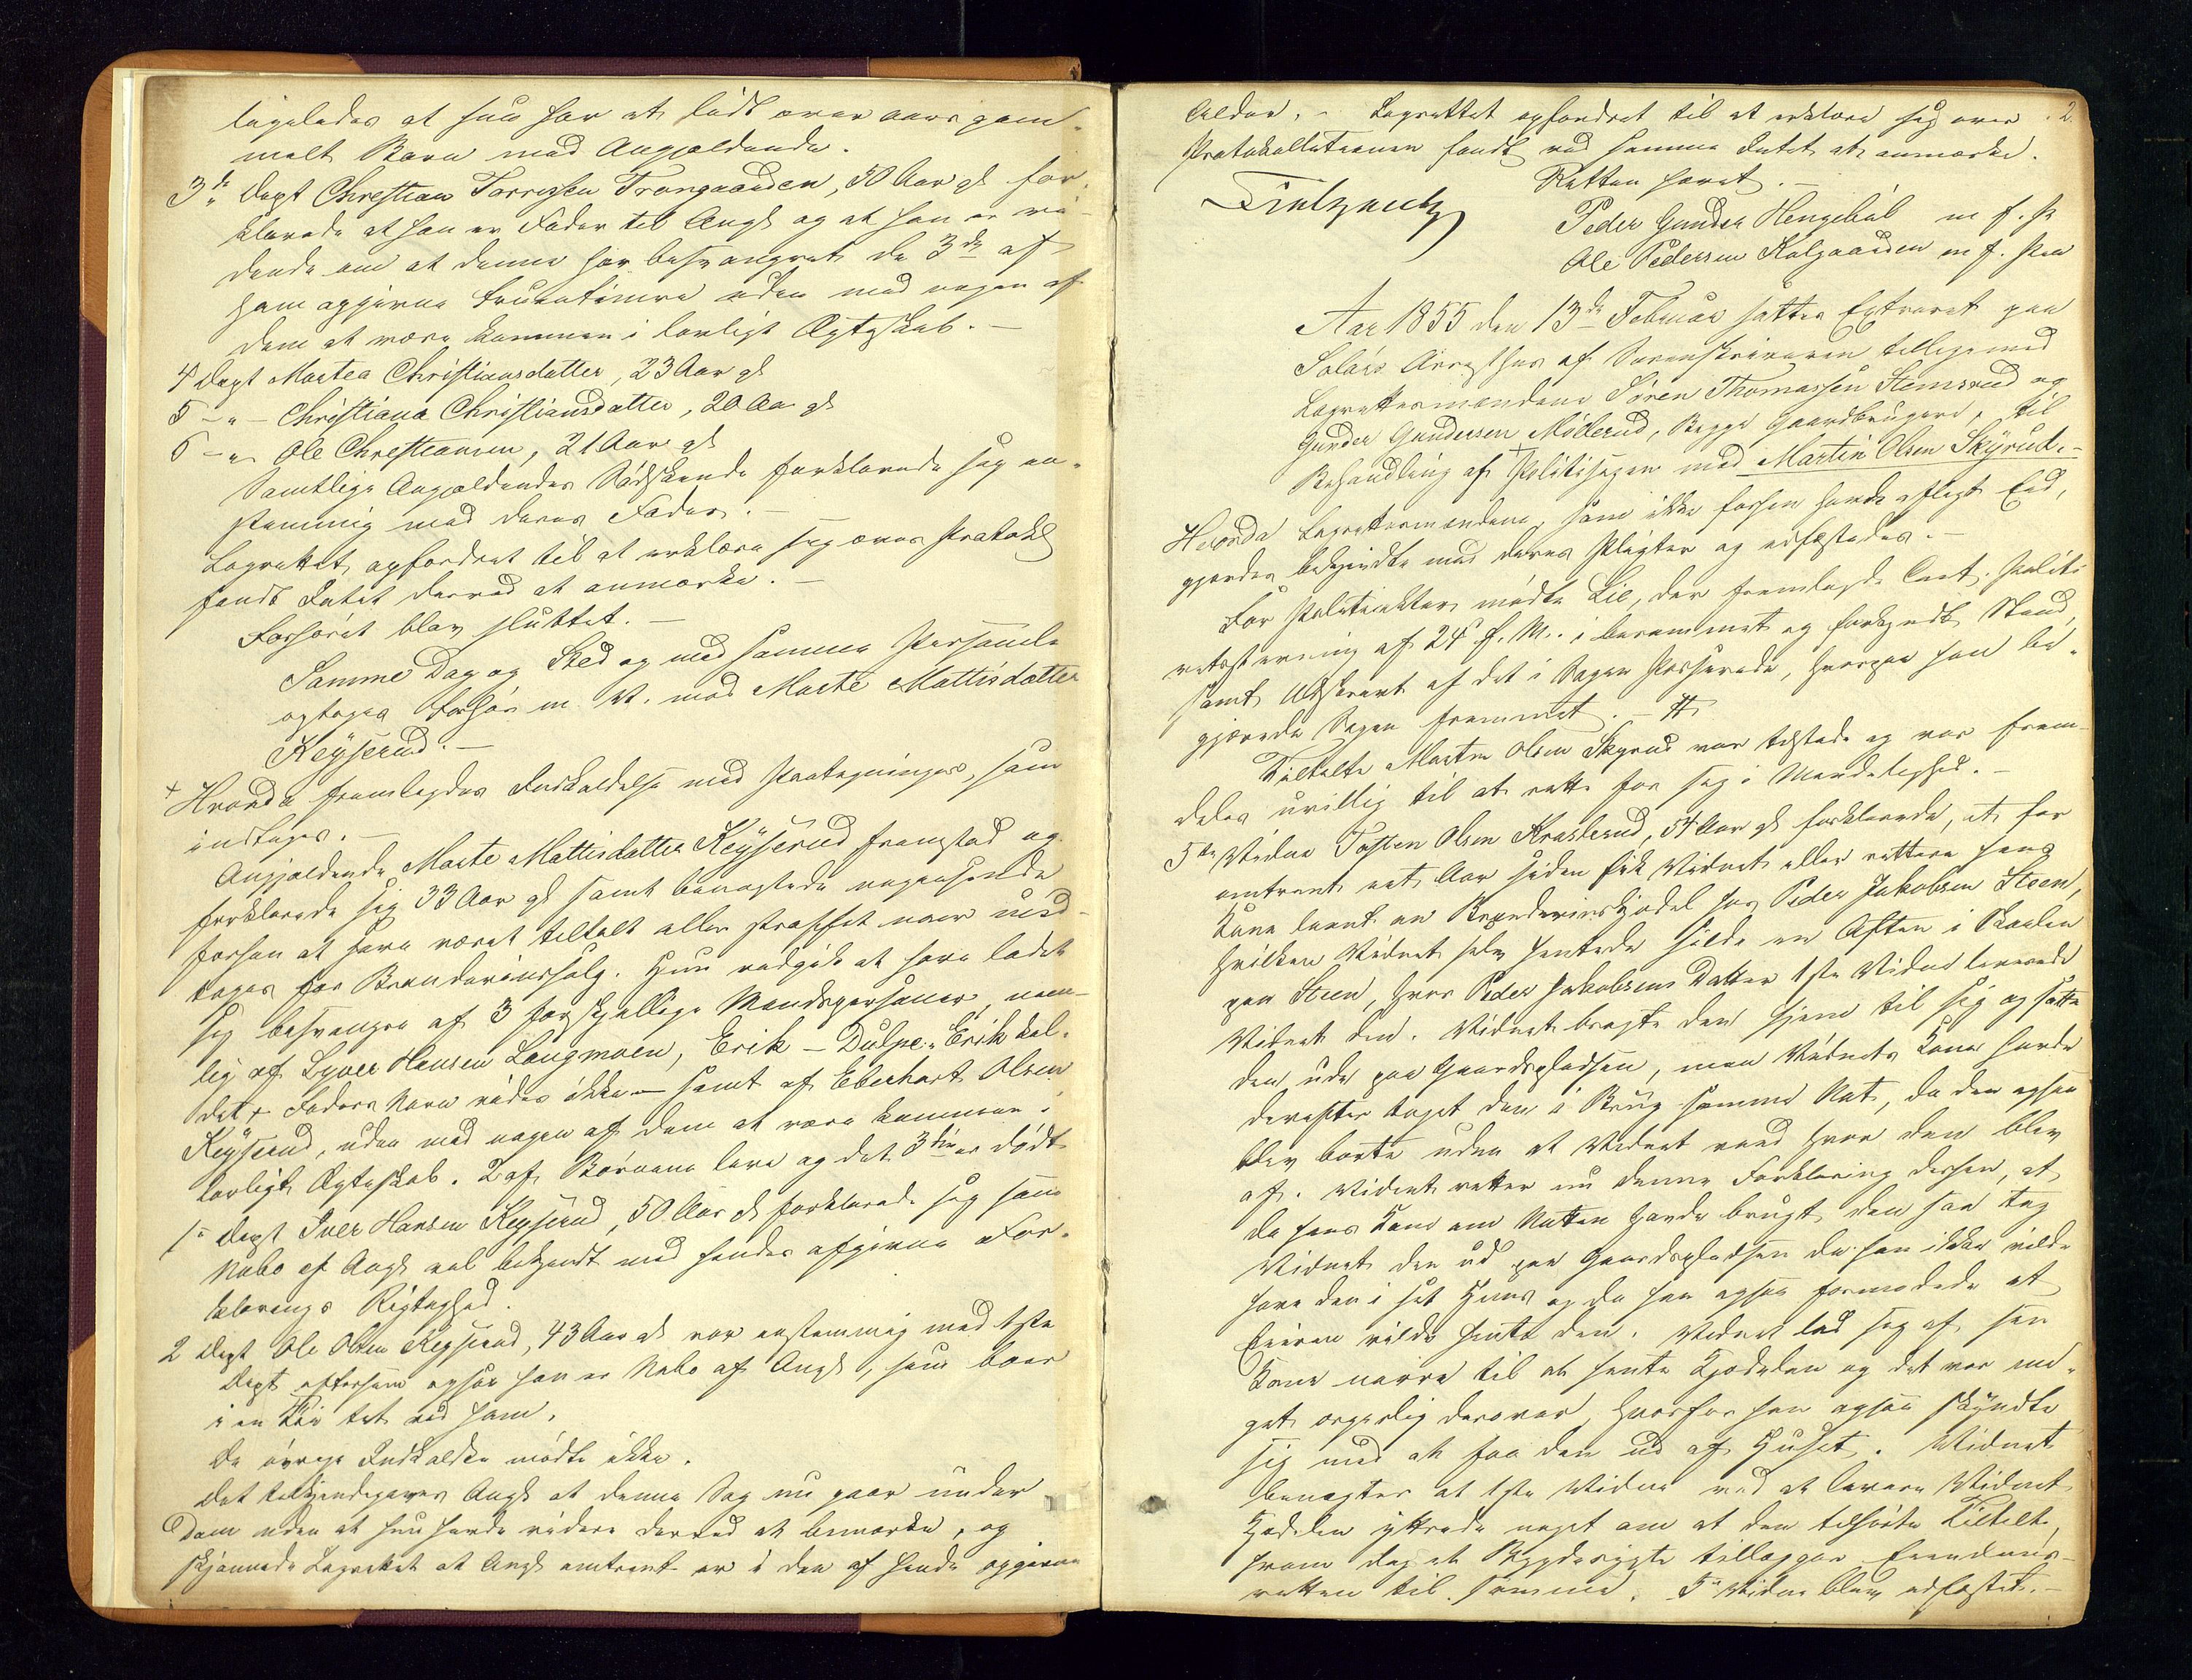 ligeledes at hun har et født over aars gam-
melt Barn med Angjældende.
3de Dept Christian Torrissen Trangaarden, 50 Aar gl for-
klarede at han er Fader til Angl og at han er vi-
dende om at denne har besvangret de 3de af
ham opgivne Fruentimre uden med nogen af
dem at være kommen i lovligt Ægteskab. –
4 Dept Martea Christiansdatter, 23 Aar gl
5 – " – Christiana Christiansdatter, 20 Aar gl
6 – " – Ole Christiansen, 21 Aar gl
Samtlige Angjældendes Sødskende forklarede sig en-
stemmig med deres Fader. –
Lagrettet, opfordret til at erklære sig over Protokl
fandt Intet derved at anmærke. –
Forhøret blev sluttet. –
Samme Dag og Sted og med samme Personale
optoges Forhør m. V. mod Marte Mattisdatter
Keyserud. –
Hvorda fremlagdes Indkaldelse med Paategninger, som
indtages. –
Angjældende Marte Mattisdatter Keyserud fremstod og
forklarede sig 33 Aar gl samt benægtede nogensinde
forhen at have været tiltalt eller straffet naar und-
tages for Brændeviinssalg. Hun vedgik at have ladet
sig besvangre af 3 forskjellige Mandspersoner, nem-
lig af Hansen Langmoen, Erik – Dulpe-Erik kal-
det, Faders Navn vides ikke – samt af Eberhart Olsen
Keyserud, uden med nogen af dem at være kommen i
lovligt Ægteskab. 2 af Børnene leve og det 3die er dødt
1ste Dept Iver Hansen Keyserud, 50 Aar gl forklarede sig som
Nabo af Angl vel bekjendt med hendes afgivne For-
klarings Rigtighed.
2 Dept Ole Olsen Keyserud, 43 Aar gl var enstemmig med 1ste
Dept eftersom ogsaa han er Nabo af Angl, som boer
i en tet ved ham.
De øvrige Indkaldte mødte ikke.
Det tilkjendegaves Angl at denne Sag nu gaar under
Dom uden at hun havde videre derved at bemærke, og
skjønnede Lagrettet at Angl omtrent er i den af hende opgivne
2.
Alder. – Lagrettet opfordret til at erklære sig over
Protokollationen fandt ved samme Intet at anmærke.
Retten hævet. –
Peder Gunder Hengebøl m. f. P
Ole Pedersen Kolgaarden m f. Pen
Aar 1855 den 13de Februar sattes Extraret paa
Solørs Arresthus af Sorenskriveren tilligemed
Lagrettesmændene Søren Thomassen Stemsrud og
Gunder Gundersen Møllerud, Begge Gaardbrugere, til
Behandling af Politisagen mod Martin Olsen Skyrud. –
Hvorda Lagrettesmændene, som ikke forhen havde aflagt Eed,
gjordes bekjendte med deres Pligter og edfæstedes. –
For Politiaktor mødte Lie, der fremlagde Cont. Politi
retsstevning af 24 f. M. i berammet og forkyndt Stand,
samt Udskrivt af det i Sagen Passerede, hvorpaa han be-
gjærede Sagen fremmet. –
Tiltalte Martin Olsen Skyrud var tilstede og var frem-
deles uvillig til at rette for sig i Mindelighed. –
5te Vidne Tosten Olsen Kraslerud, 54 Aar gl forklarede, at for
omtrent et Aar siden fik Vidnet eller rettere hans
Kone laant en Brændeviinskjedel hos Peder Jakobsen Steen,
hvilken Vidnet selv hentede silde en Aften i Skoelen
paa Steen, hvor Peder Jakobsens Datter 1ste Vidne leverede
Vidnet den. Vidnet bragte den hjem til sig og satte
den ude paa Gaardspladsen, men Vidnets Kone havde
derefter taget den i Brug samme Nat, da den ogsaa
blev borte uden at Vidnet veed hvor den blev
af. Vidnet retter nu denne Forklaring derhen, at
da hans Kone om Natten havde brugt den saa tog
Vidnet den ud paa Gaardspladsen da han ikke vilde
have den i sit Huus og da han ogsaa formodede at
Eieren vilde hente den. Vidnet lod sig af sin
Kone narre til at hente Kjedelen og det var me-
get ærgerlig derover, hvorfor han ogsaa skyndte
sig med at faa den ud af Huset. Vidnet
benægter at 1ste Vidne ved at levere Vidnet
Kjedelen yttrede noget om at den tilhørte Tiltalte,
hvem dog et Bygderygte tillægger Eiendoms-
retten til samme. 5te Vidne blev edfæstet. –